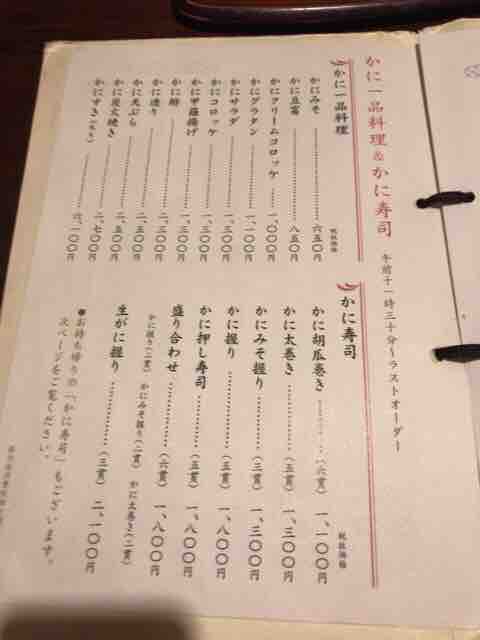 かに一品料理&かに寿司 午前十一時三十分〜ラストオーダー
かに一品料理
税抜価格
かにみそ 六五〇円
かに豆富 八五〇円
かにクリームコロッケ 一、〇〇〇円
かにグラタン 一、一〇〇円
かにサラダ 一、三〇〇円
かにコロッケ 一、三〇〇円
かに甲羅揚げ 一、三〇〇円
かに酢 二、三〇〇円
かに造り 二、五〇〇円
かに天ぷら 二、五〇〇円
かに炭火焼き 二、七〇〇円
かにすき 六、一〇〇円
かに寿司
税抜価格
かに胡瓜巻き (六貫) 一、一〇〇円
かに太巻き (五貫) 一、三〇〇円
かにみそ握り (三貫) 一、三〇〇円
かに握り (五貫) 一、八〇〇円
かに押し寿司 (五貫) 一、八〇〇円
盛り合わせ (六貫) 一、八〇〇円
かに握り(二貫) かにみそ握り(二貫) かに太巻き(二貫)
生がに握り (三貫) 二、一〇〇円
●お持ち帰りの「かに寿司」もございます。
次ページをご覧ください。